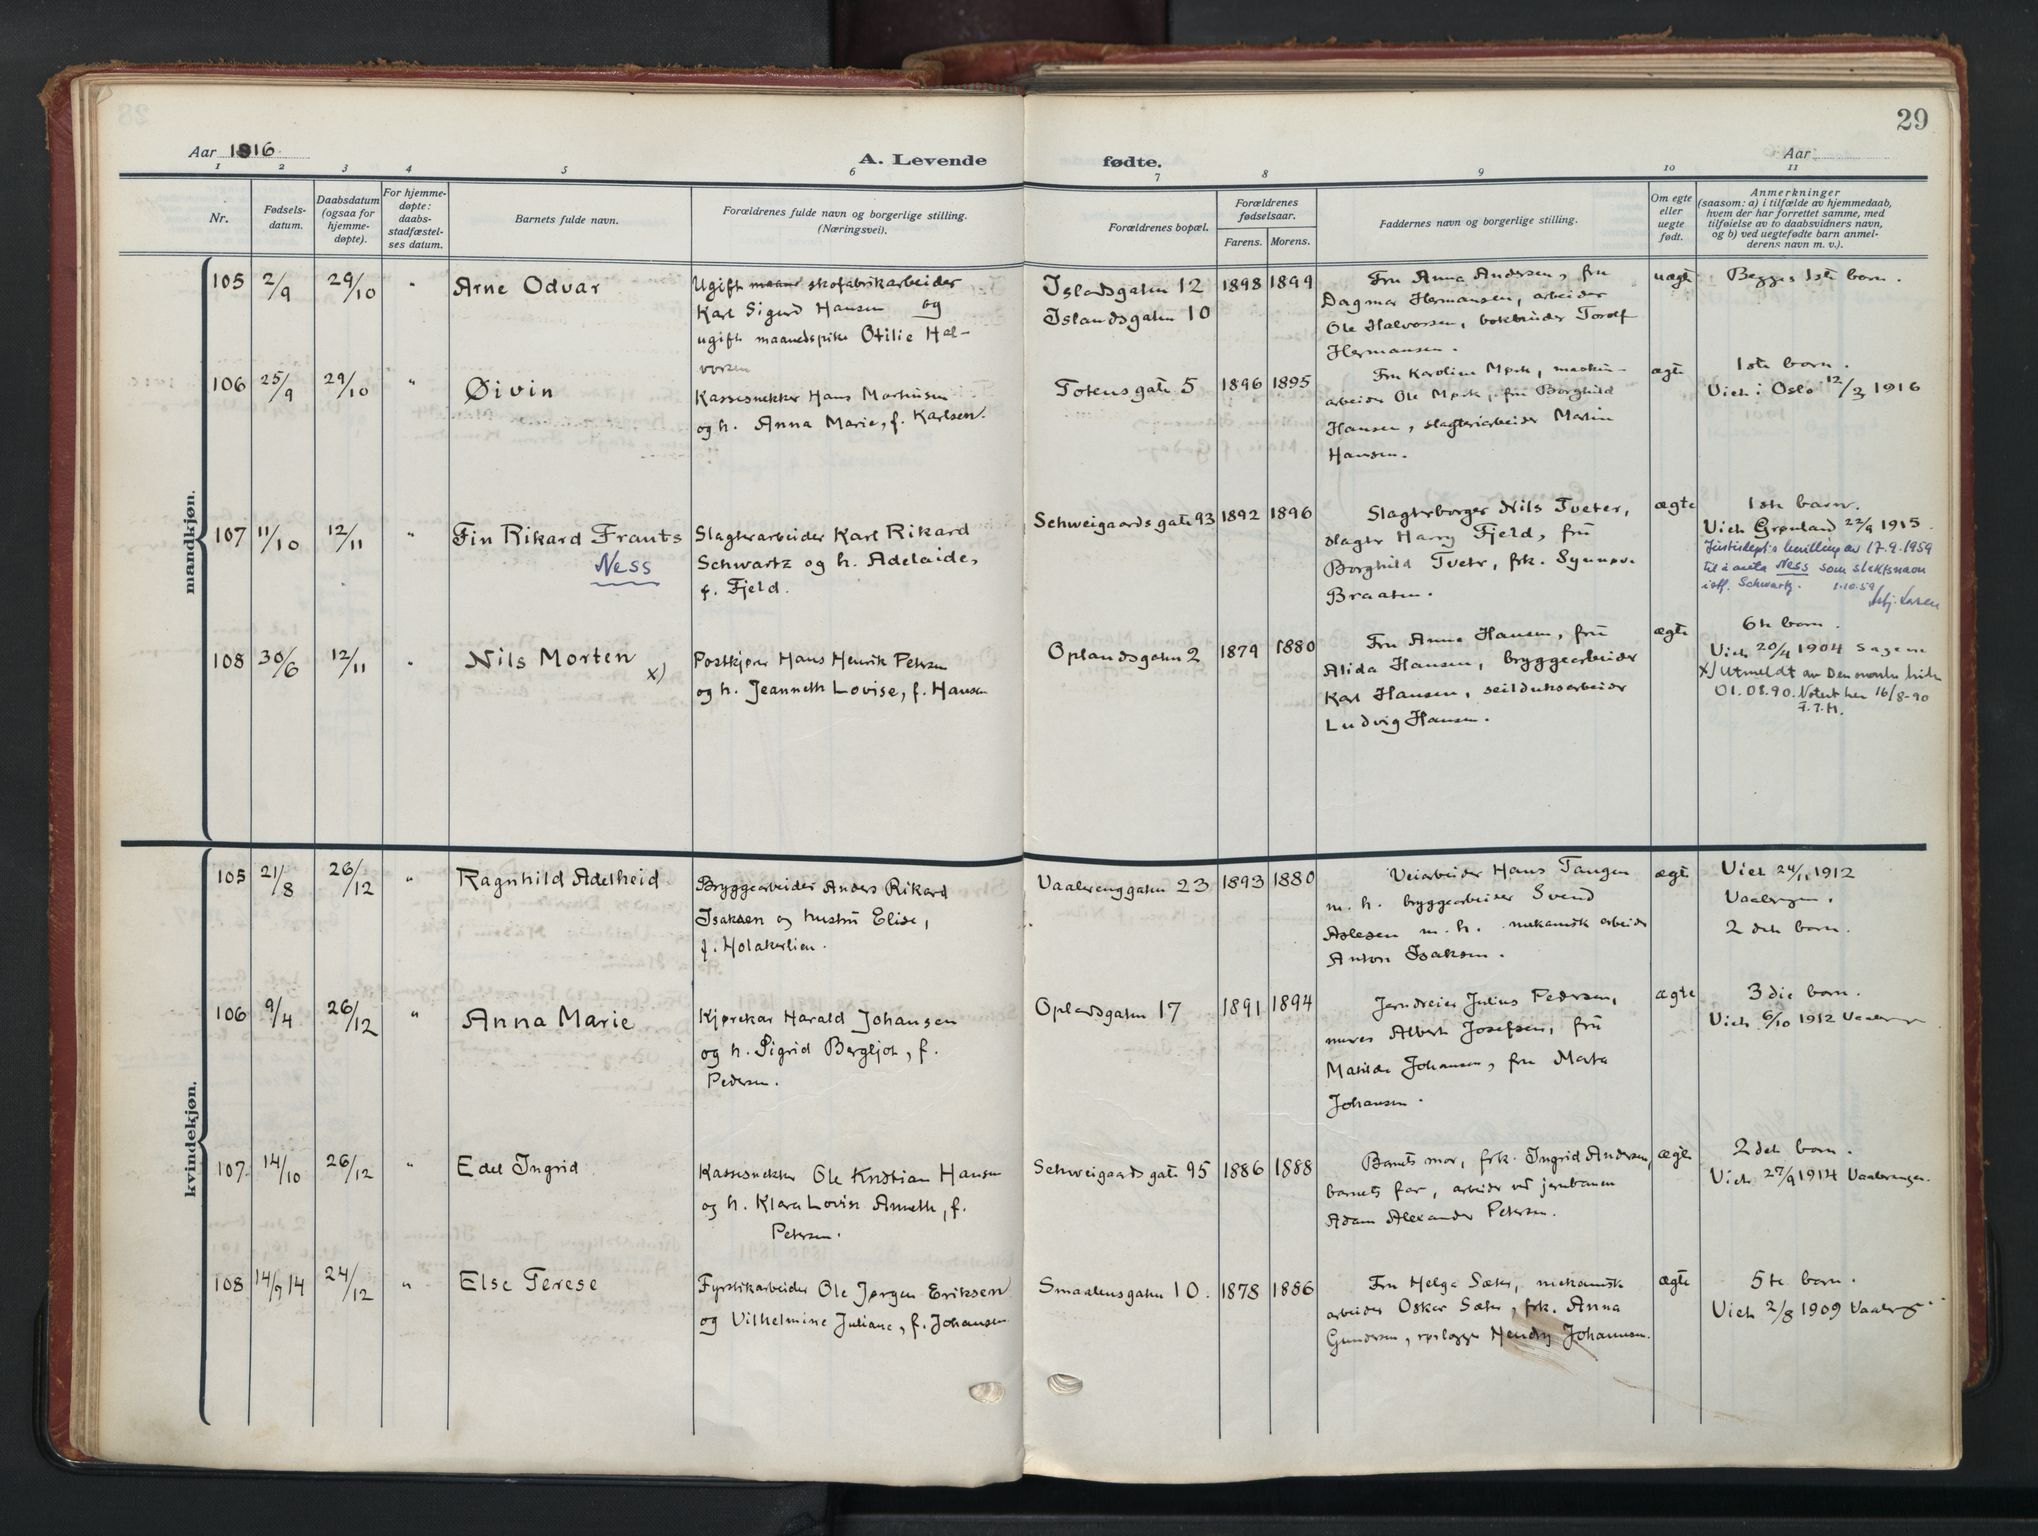 29
Aar 1916.
A. Levende
fødte.
Aar
1 2 3 4 5 6 7 8 9 10 11
Nr.
Fødsels-
datum.
Daabsdatum
(ogsaa for
hjemme-
døpte).
For hjemme-
døpte:
daabs-
stadfæstel-
ses datum.
Barnets fulde navn.
Forældrenes fulde navn og borgerlige stilling.
(Næringsvei).
Forældrenes bopæl.
Forældrenes
fødselsaar.
Farens. Morens.
Faddernes navn og borgerlige stilling.
Om egte
eller
uegte
født.
Anmerkninger
(saasom: a) i tilfælde av hjemmedaab,
hvem der har forrettet samme, med
tilføielse av to daabsvidners navn,
og b) ved uegtefødte barn anmel-
derens navn m. v.).
mandkjøn.
105 2/9 29/10 " Arne Odvar
Ugift skofabrikarbeider
Karl Sigurd Hansen og
ugift maanedspike Otilie Hal-
vorsen
Islandsgaten 12
Islandsgaten 10
1898 1899
Fru Anna Andersen, fru
Dagmar Hermansen, arbeider
Ole Halvorsen, bokbinder Torolf
Hermansen.
uægte
Begges 1ste barn.
106 25/9 29/10 " Øivin
Kassesnekker Hans Martinsen
og h. Anna Marie, f. Karlsen.
Totensgate 5
1896 1895
Fru Karoline Mørk, maskin-
arbeider Ole Mørk, fru Borghild
Hansen, slagteriarbeider Martin
Hansen.
ægte
1ste barn.
Viet i Oslo 12/3 1916
107 11/10 12/11 " Fin Rikard Frants
Ness
Slagterarbeider Karl Rikard
Schwartz og h. Adelaide,
f. Fjeld.
Schweigaards gate 93
1892 1896
Slagterborger Nils Tveter,
slagter Harry Fjeld, fru
Borghild Tveter, frk. Synnøve
Braaten.
ægte
1ste barn.
Viet Grønland 22/9 1915.
Justisdept's bevilling av 17.9.1959
til å anta Ness som slektsnavn
istf. Schwartz. 1.10.59
108 30/6 12/11 " Nils Morten x)
Postkjører Hans Henrik Petersen
og h. Jeanneth Lovise, f. Hansen
Oplandsgaten 2
1879 1880
Fru Anna Hansen, fru
Alida Hansen, bryggearbeider
Karl Hansen, seilduksarbeider
Ludvig Hansen.
ægte
6te barn.
Viet 20/4 1904 Sagene
x) Utmeldt av Den norske kirke
01.08.90. Notert her 16/8-90
F.T.H.
kvindekjøn.
105 21/8 26/12 " Ragnhild Adelheid
Bryggearbeider Anders Rikard
Isaksen og hustru Elise,
f. Holakerlien.
Vaalerenggaten 23
1893 1880
Veiarbeider Hans Tangen
m. h. bryggearbeider Svend
Aslesen m. h. mekanisk arbeider
Anton Isaksen.
ægte
Viet 24/11 1912
Vaalerengen.
2 det barn.
106 9/4 26/12 " Anna Marie
Kjørekar Harald Johansen
og h. Sigrid Bergljot, f.
Pedersen.
Oplandsgaten 17
1891 1894
Jerndreier Julius Pedersen,
murer Albert Josefsen, fru
Matilde Johansen, fru Marta
Johansen.
ægte
3 die barn.
Viet 6/10 1912 Vaalerengen
107. 14/10 26/12 " Edel Ingrid
Kassesnekker Ole Kristian Hansen
og h. Klara Lovise Annethe, f.
Petersen.
Schweigaards gate 95
1886 1888
Barnets mor, frk. Ingrid Andersen,
barnets far, arbeider ved jernbanen
Adam Alexander Petersen.
ægte
2 det barn.
Viet 27/9 1914 Vaalerengen.
108 14/9 14 24/12 " Else Terese
Fyrstikarbeider Ole Jørgen Eriksen
og Vilhelmine Juliane, f. Johansen
Smaalensgaten 10.
1878 1886
Fru Helga Sæter, mekanisk
arbeider Oskar Sæter, frk. Anna
Gundersen, Hendry Johannesen.
ægte
5te barn.
Viet 2/8 1909 Vaalereng